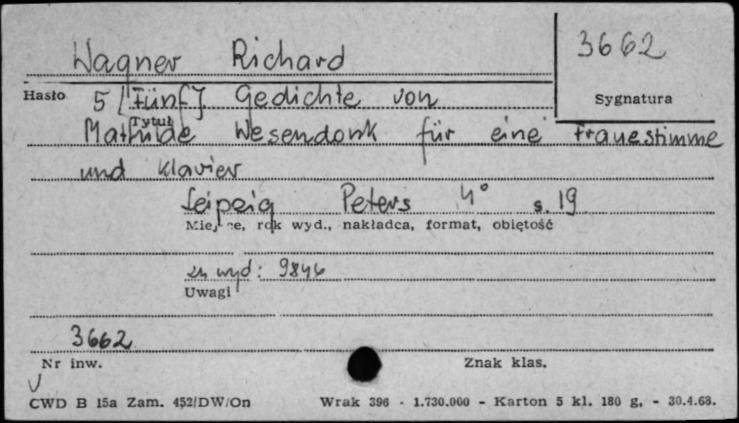 Wagner Richard
3662
Hasło
5 [Fünf] Gedichte von
Sygnatura
Tytuł
Mathilde Wesendonk für eine Frauestimme
und Klavier
Leipzig Peters 4° s. 19
Miejsce, rok wyd., nakładca, format, objętość
zn wyd: 9846
Uwagi
3662
Nr inw.
Znak klas.
CWD B 15a Zam. 452/DW/On
Wrak 396 - 1.730.000 - Karton 5 kl. 180 g. - 30.4.68.